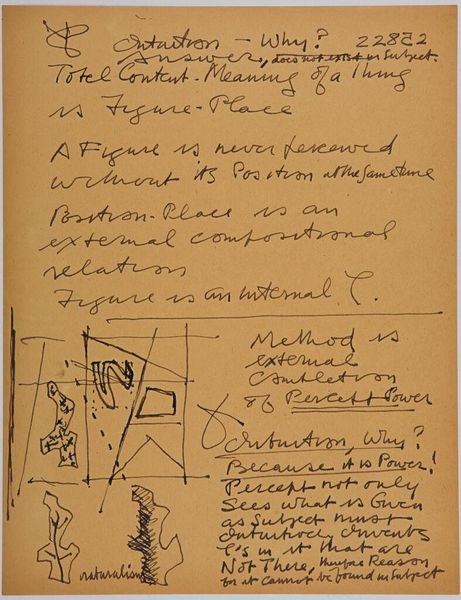 Intuition – Why? 22852
Answer, does not exist in Subject.
Total Content - Meaning of a Thing
is Figure-Place
A Figure is never perceived
without its Position at the same time
Position-Place is an
external compositional
relation
Figure is an internal C.
Method is
external
Completion
of Percept Power
Intuition, Why?
Because it is Power!
Percept not only
Sees what is Given
as Subject must
intuitively invents
C's in it that are
Not There, Reason
for it Cannot be found in Subject
naturalism